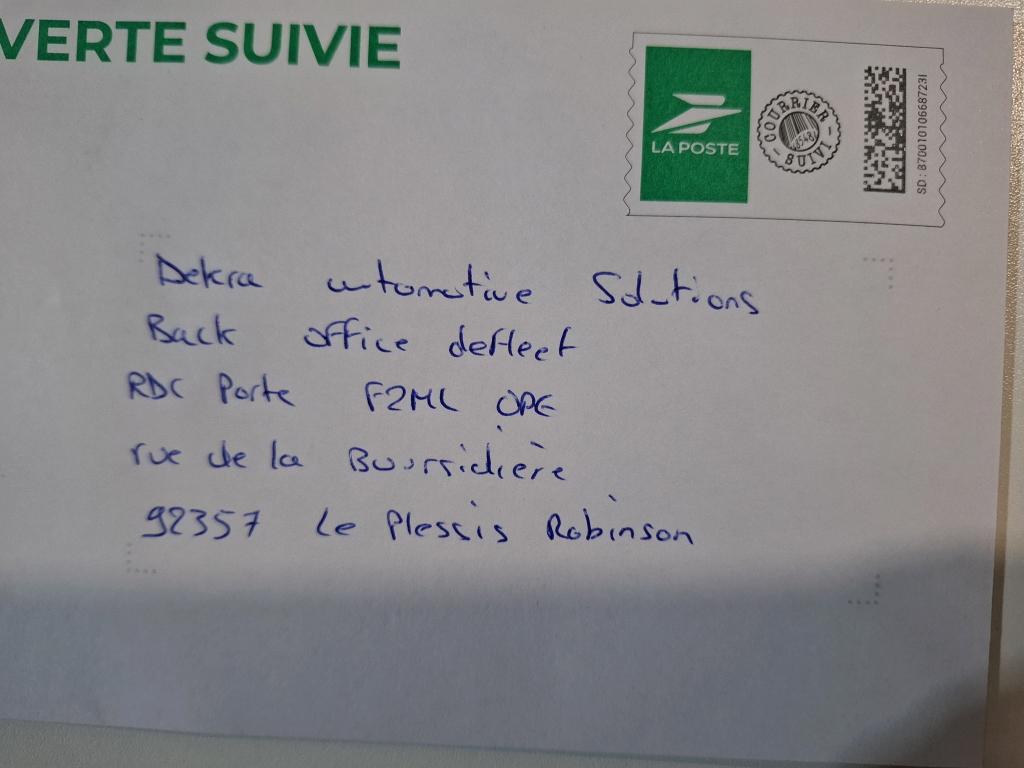 VERTE SUIVIE
LA POSTE
COURRIER SUIVI
SD : 87001010668723I
Dekra automotive Solutions
Back office defleet
RDC Porte F2ML OPE
rue de la Boursidière
92357 Le Plessis Robinson